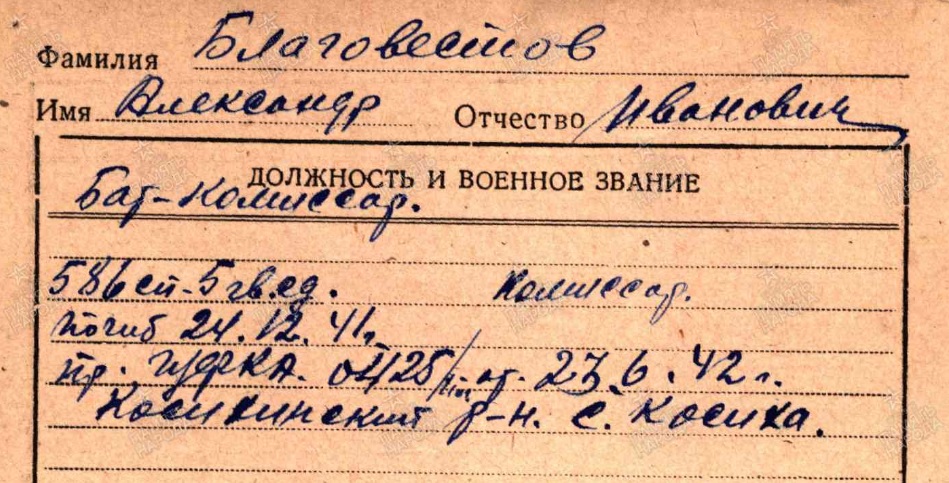 Фамилия Благовестов
Имя Александр Отчество Иванович
ДОЛЖНОСТЬ И ВОЕННОЕ ЗВАНИЕ
Бат-Комиссар.
586 сп-5 гв.сд. Комиссар.
погиб 24.12.41г.
пр. ГУФКА. 0425/ от 23.6.42 г.
Косихинский р-н. с. Косиха.